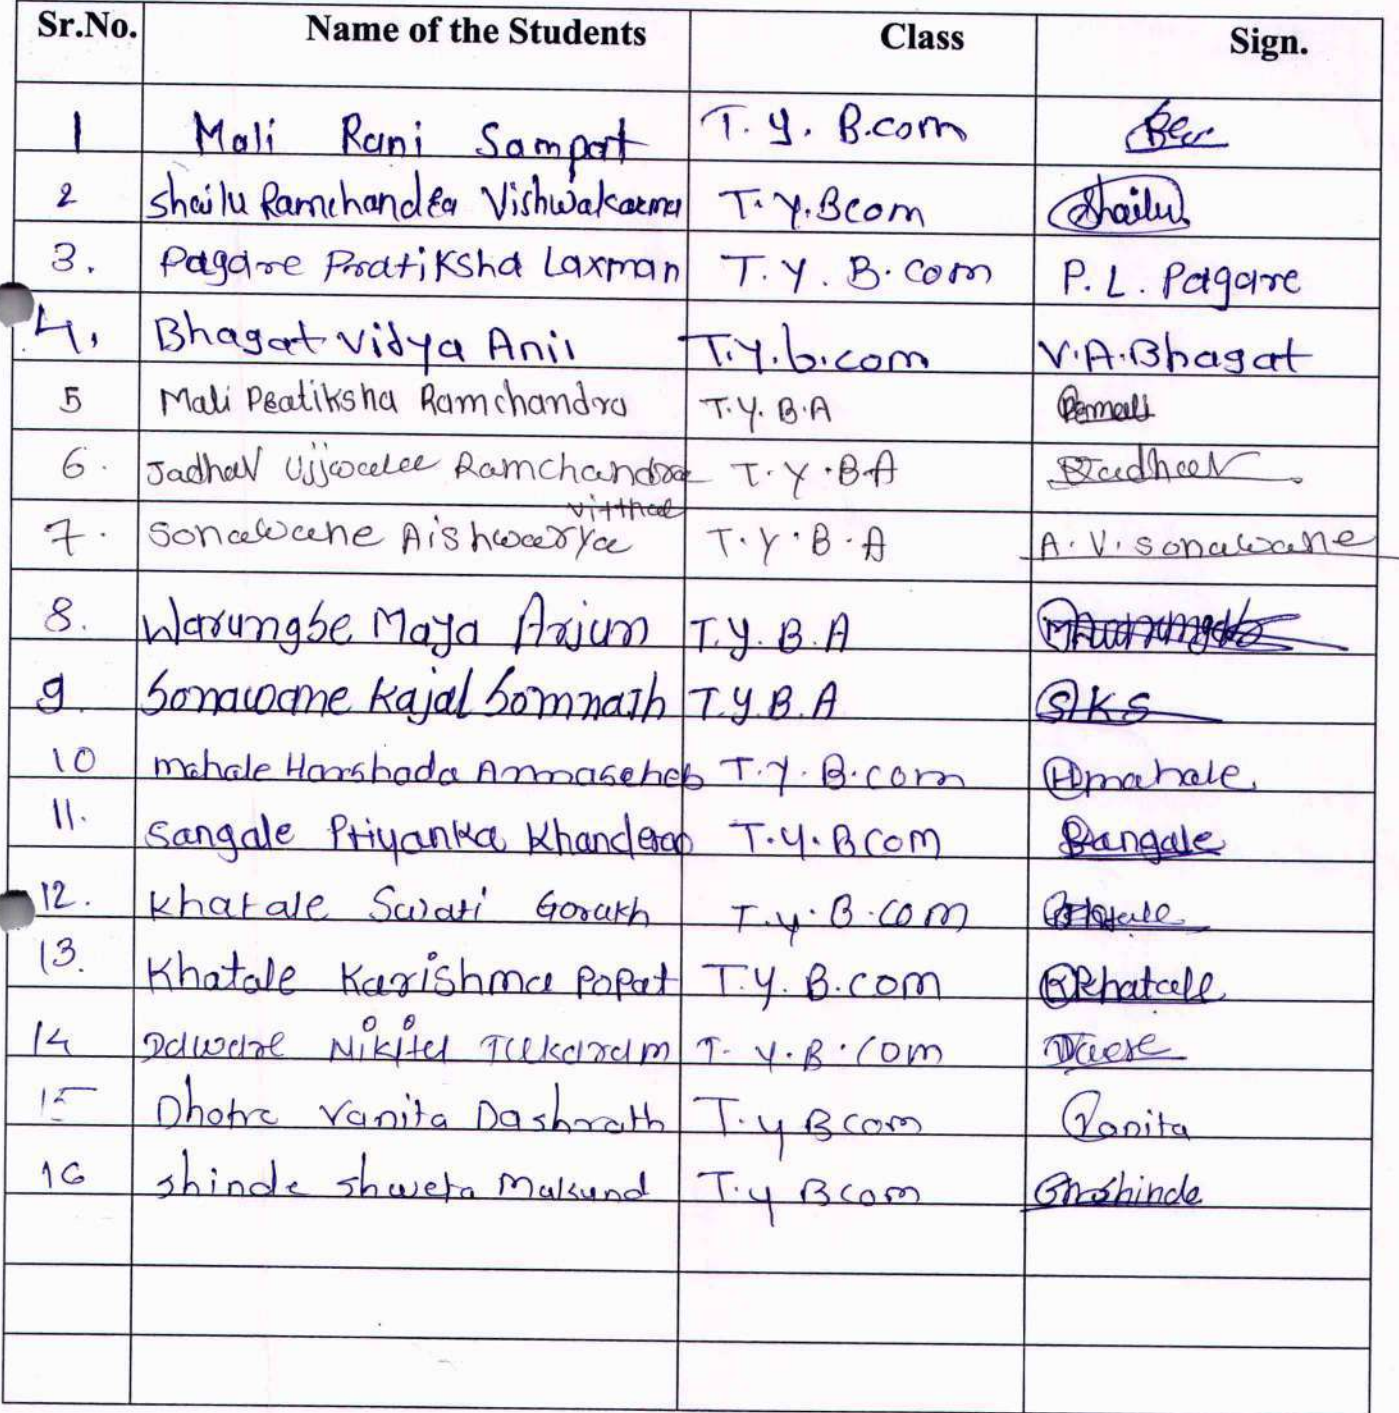 Sr.No. Name of the Students Class Sign.
1 Mali Rani Sampat T. Y. B.com
2 Shailu Ramchandra Vishwakarma T.Y.Bcom Shailu
3. Pagare Pratiksha Laxman T. Y. B.com P. L. Pagare
4. Bhagat Vidya Anil T.Y.b.com V.A.Bhagat
5 Mali Pratiksha Ramchandra T.Y. B.A Pmali
6. Jadhav Ujjwala Ramchandra T.Y.BA Jadhav
vitthal
7. Sonawane Aishwarya T.Y.B.A A.V. sonawane
8. Warungse Maya Arjun T.Y. B.A
9. Sonawane Kajal Somnath T.Y.B.A SKS
10 mahale Harshada Annasaheb T.Y.B.com Hmahale.
11. Sangale Priyanka Khanderao T.Y.Bcom Sangale
12. Khatale Swati Gorakh T.y.B.com
13. Khatale Karishma Popat T.Y. B.com Kkhatale
14 Daware Nikita Tukaram T.Y.B.com
15 Dhotre Vanita Dashrath T.y Bcom Vanita
16 shinde shweta Mukund T.y Bcom Smshinde